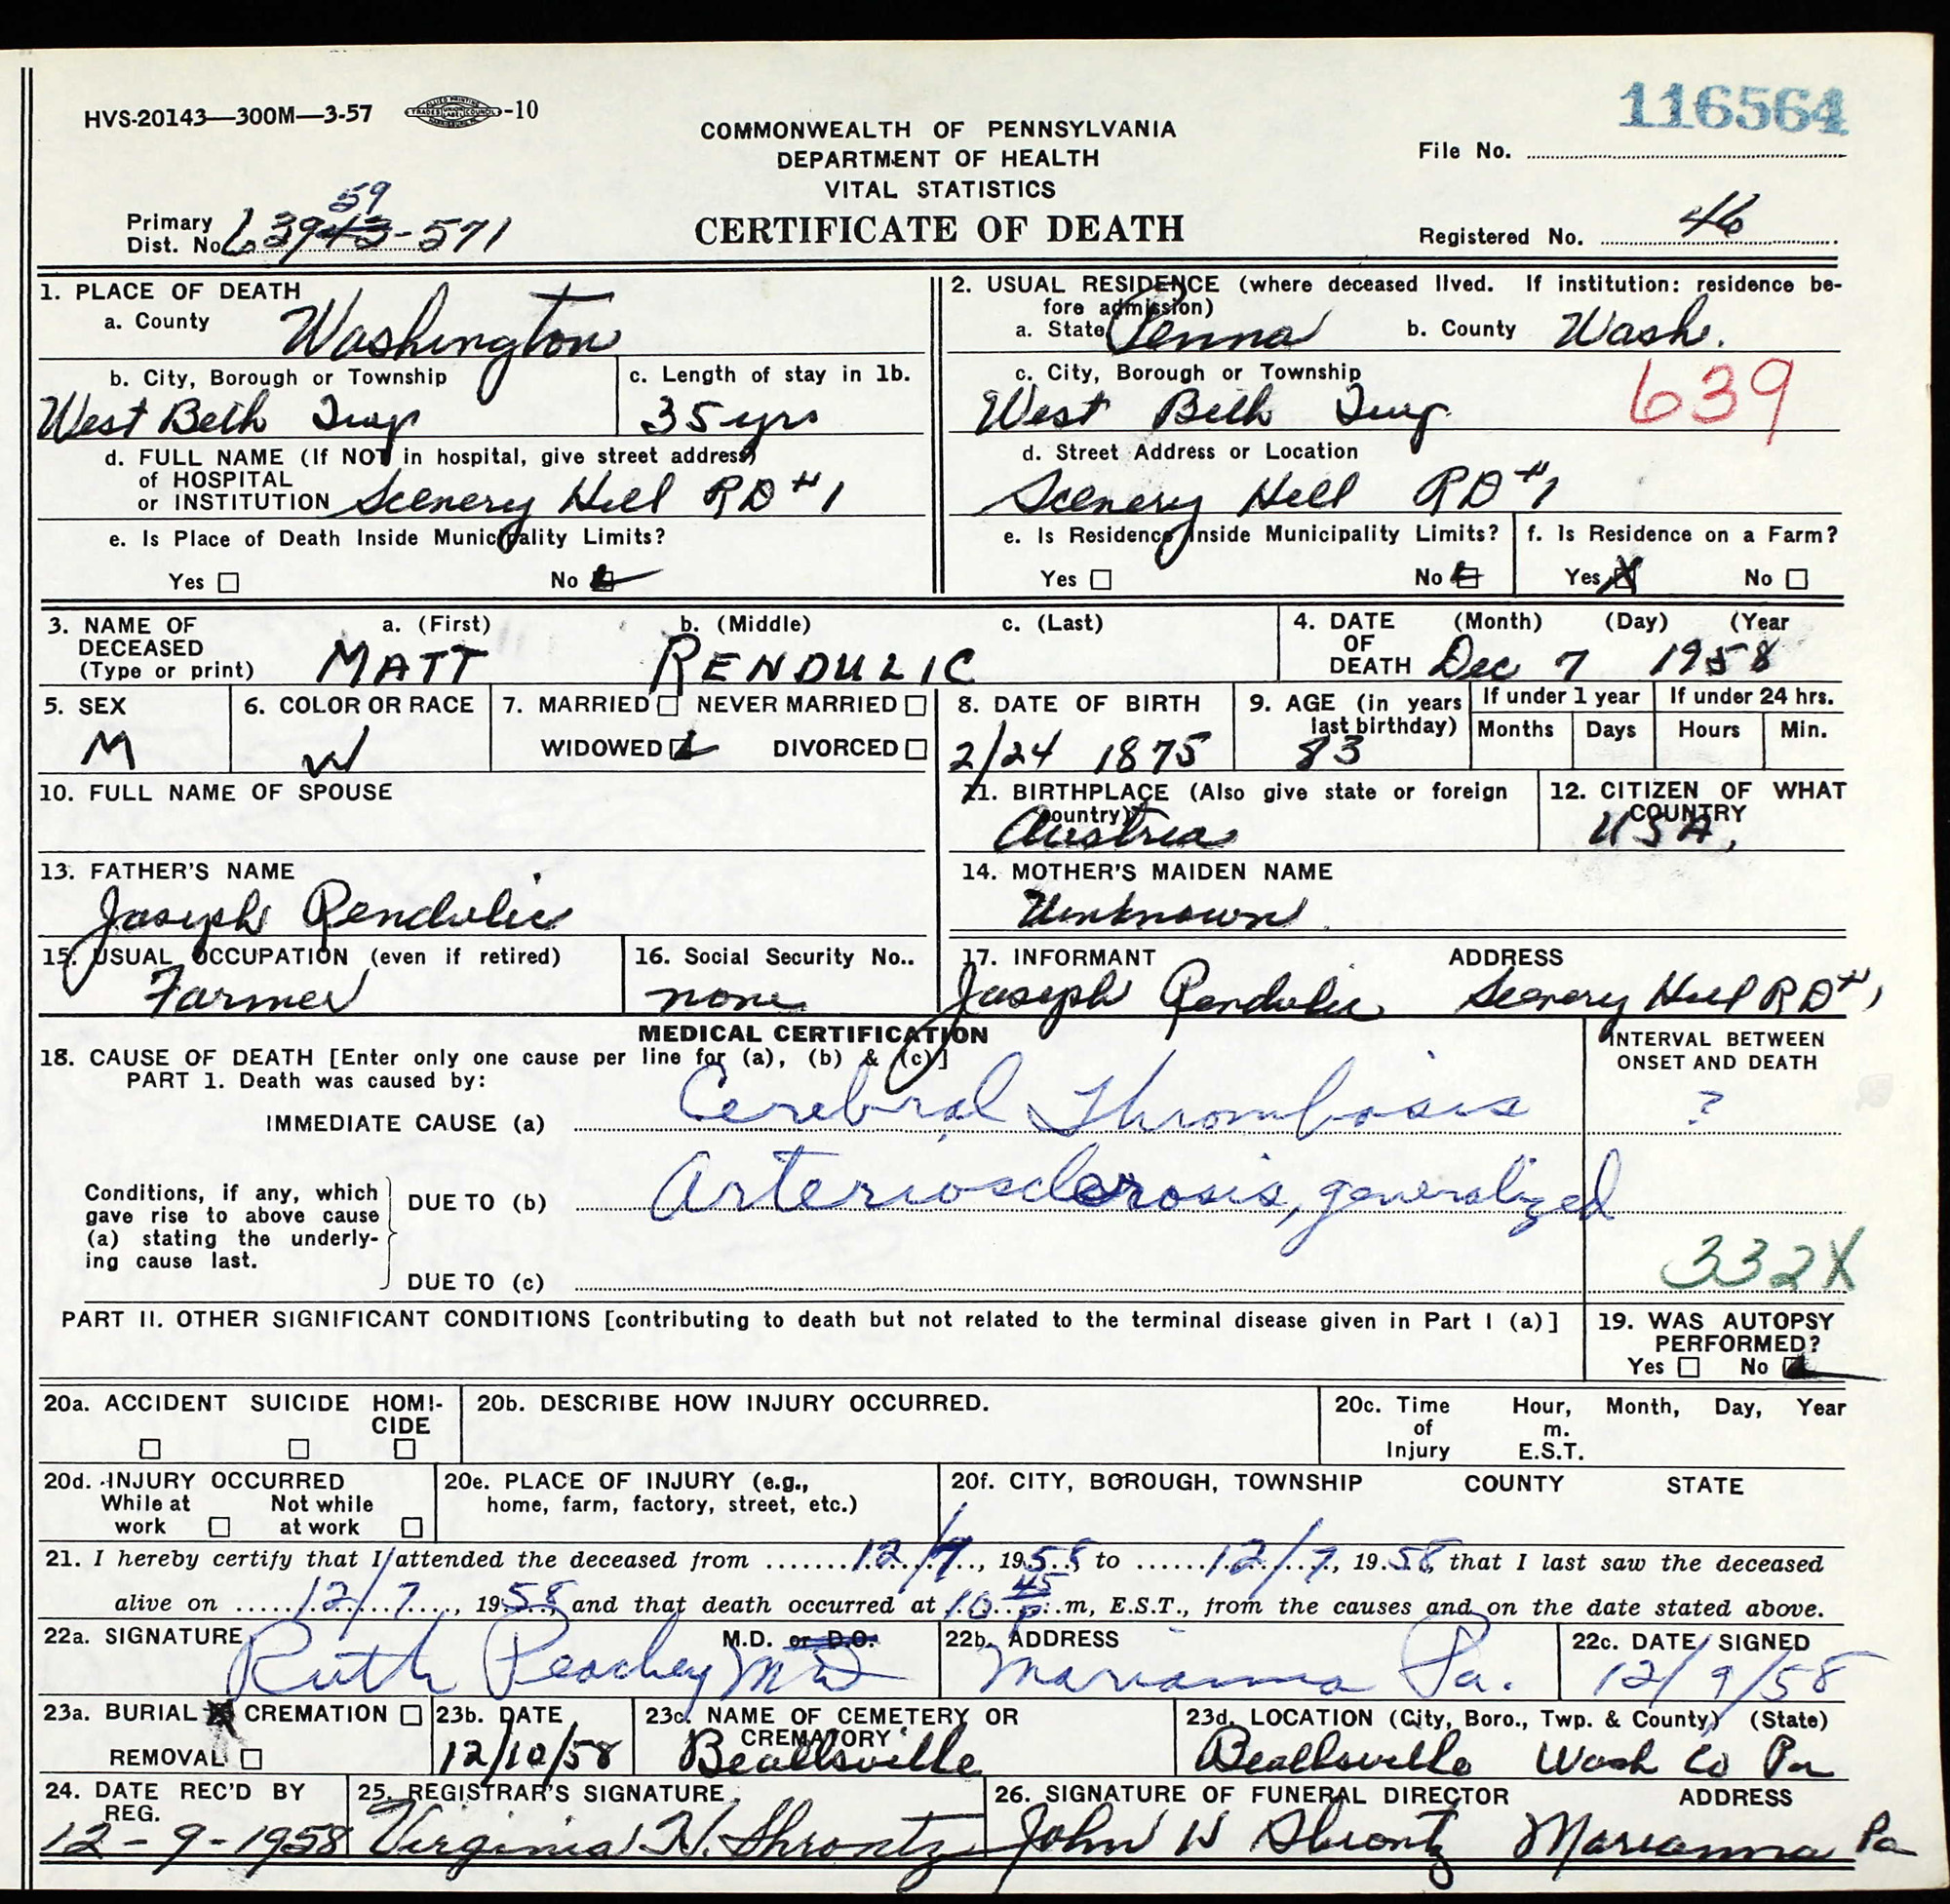 116564
HVS-20143—300M—3-57 -10
COMMONWEALTH OF PENNSYLVANIA
DEPARTMENT OF HEALTH
VITAL STATISTICS
CERTIFICATE OF DEATH
File No.
59
Primary
Dist. No. 6 3943-571
Registered No. 46
1. PLACE OF DEATH
a. County Washington
b. City, Borough or Township
West Beth Twp
c. Length of stay in 1b.
35 yrs
d. FULL NAME (If NOT in hospital, give street address)
of HOSPITAL
or INSTITUTION Scenery Hill RD #1
e. Is Place of Death Inside Municipality Limits?
Yes No
2. USUAL RESIDENCE (where deceased lived. If institution: residence be-
fore admission)
a. State Penna b. County Wash.
c. City, Borough or Township
West Beth Twp. 639
d. Street Address or Location
Scenery Hill RD #1
e. Is Residence Inside Municipality Limits?
Yes No
f. Is Residence on a Farm?
Yes X No
3. NAME OF DECEASED
(Type or print)
a. (First) b. (Middle) c. (Last)
MATT RENDULIC
4. DATE OF DEATH
(Month) (Day) (Year
Dec 7 1958
5. SEX
M
6. COLOR OR RACE
W
7. MARRIED NEVER MARRIED
WIDOWED DIVORCED
8. DATE OF BIRTH
2/24 1875
9. AGE (in years
last birthday)
83
If under 1 year
Months Days
If under 24 hrs.
Hours Min.
10. FULL NAME OF SPOUSE
11. BIRTHPLACE (Also give state or foreign
country)
Austria
12. CITIZEN OF WHAT
COUNTRY
USA.
13. FATHER'S NAME
Joseph Rendulic
14. MOTHER'S MAIDEN NAME
Unknown
15. USUAL OCCUPATION (even if retired)
Farmer
16. Social Security No..
none
17. INFORMANT ADDRESS
Joseph Rendulic Scenery Hill RD #1
MEDICAL CERTIFICATION
18. CAUSE OF DEATH [Enter only one cause per line for (a), (b) & (c)]
PART 1. Death was caused by:
INTERVAL BETWEEN
ONSET AND DEATH
IMMEDIATE CAUSE (a) Cerebral Thrombosis ?
Conditions, if any, which
gave rise to above cause
(a) stating the underly-
ing cause last.
DUE TO (b) Arteriosclerosis, generalized
DUE TO (c)
332X
PART II. OTHER SIGNIFICANT CONDITIONS [contributing to death but not related to the terminal disease given in Part I (a)]
19. WAS AUTOPSY
PERFORMED?
Yes No
20a. ACCIDENT SUICIDE HOMI-
CIDE
20b. DESCRIBE HOW INJURY OCCURRED.
20c. Time of Injury
Hour, Month, Day, Year
m.
E.S.T.
20d. INJURY OCCURRED
While at work Not while at work
20e. PLACE OF INJURY (e.g.,
home, farm, factory, street, etc.)
20f. CITY, BOROUGH, TOWNSHIP COUNTY STATE
21. I hereby certify that I attended the deceased from 12/7, 1958 to 12/7, 1958, that I last saw the deceased
alive on 12/7, 1958, and that death occurred at 10 45 P.m, E.S.T., from the causes and on the date stated above.
22a. SIGNATURE M.D. or D.O.
Ruth Peachey MD
22b. ADDRESS
Marianna Pa.
22c. DATE SIGNED
12/9/58
23a. BURIAL CREMATION
REMOVAL
23b. DATE
12/10/58
23c. NAME OF CEMETERY OR
CREMATORY
Beallsville
23d. LOCATION (City, Boro., Twp. & County) (State)
Beallsville Wash Co Pa
24. DATE REC'D BY
REG.
12-9-1958
25. REGISTRAR'S SIGNATURE
Virginia N. Shrontz
26. SIGNATURE OF FUNERAL DIRECTOR ADDRESS
John W Shrontz Marianna Pa